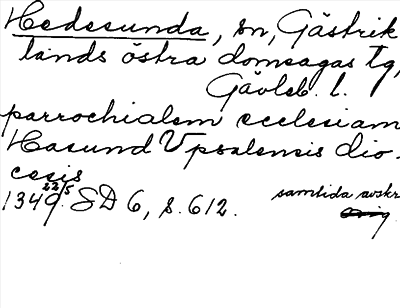 Hedesunda, sn, Gästrik
lands östra domsagas tg,
Gävleb. l.
parrochialem ecclesiam
Hasund Vpsalensis dio-
cesis
1349 22/5. SD 6, s. 612.
samtida avskr